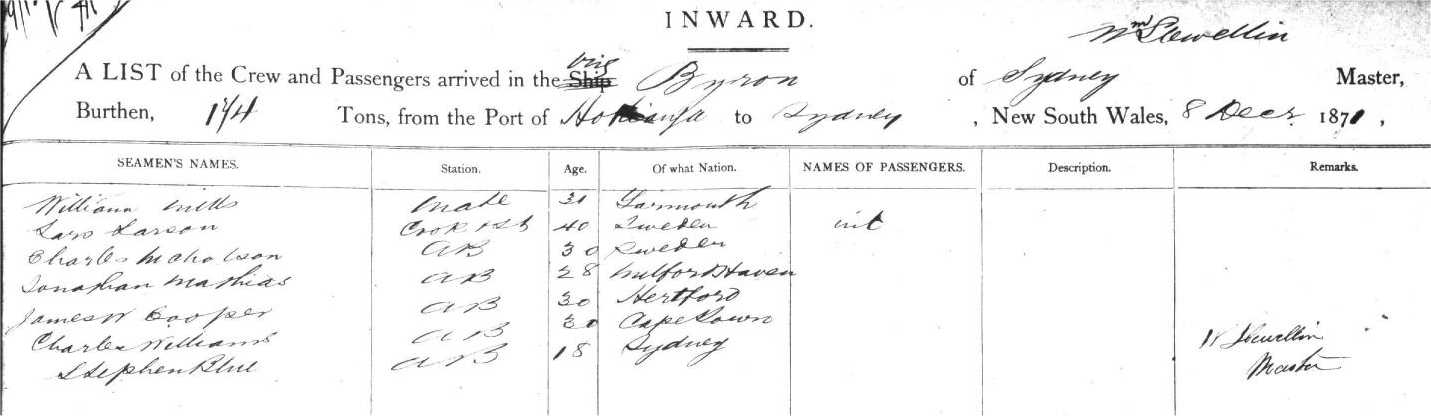 INWARD.
Wm Llewellin
A LIST of the Crew and Passengers arrived in the Ship brig Byron of Sydney Master,
Burthen, 174 Tons, from the Port of Hokianga to Sydney, New South Wales, 8 Decr 1871,
SEAMEN'S NAMES. Station. Age. Of what Nation. NAMES OF PASSENGERS. Description. Remarks.
William Mills Mate 31 Yarmouth
Lars Larson Cook & St 40 Sweden nil
Charles Nicholson AB 30 Sweden
Jonathan Mathias AB 28 Milford Haven
James W Cooper AB 30 Hertford
Charles Williams AB 30 Cape Town
Stephen Blue AB 18 Sydney
W Llewellin
Master